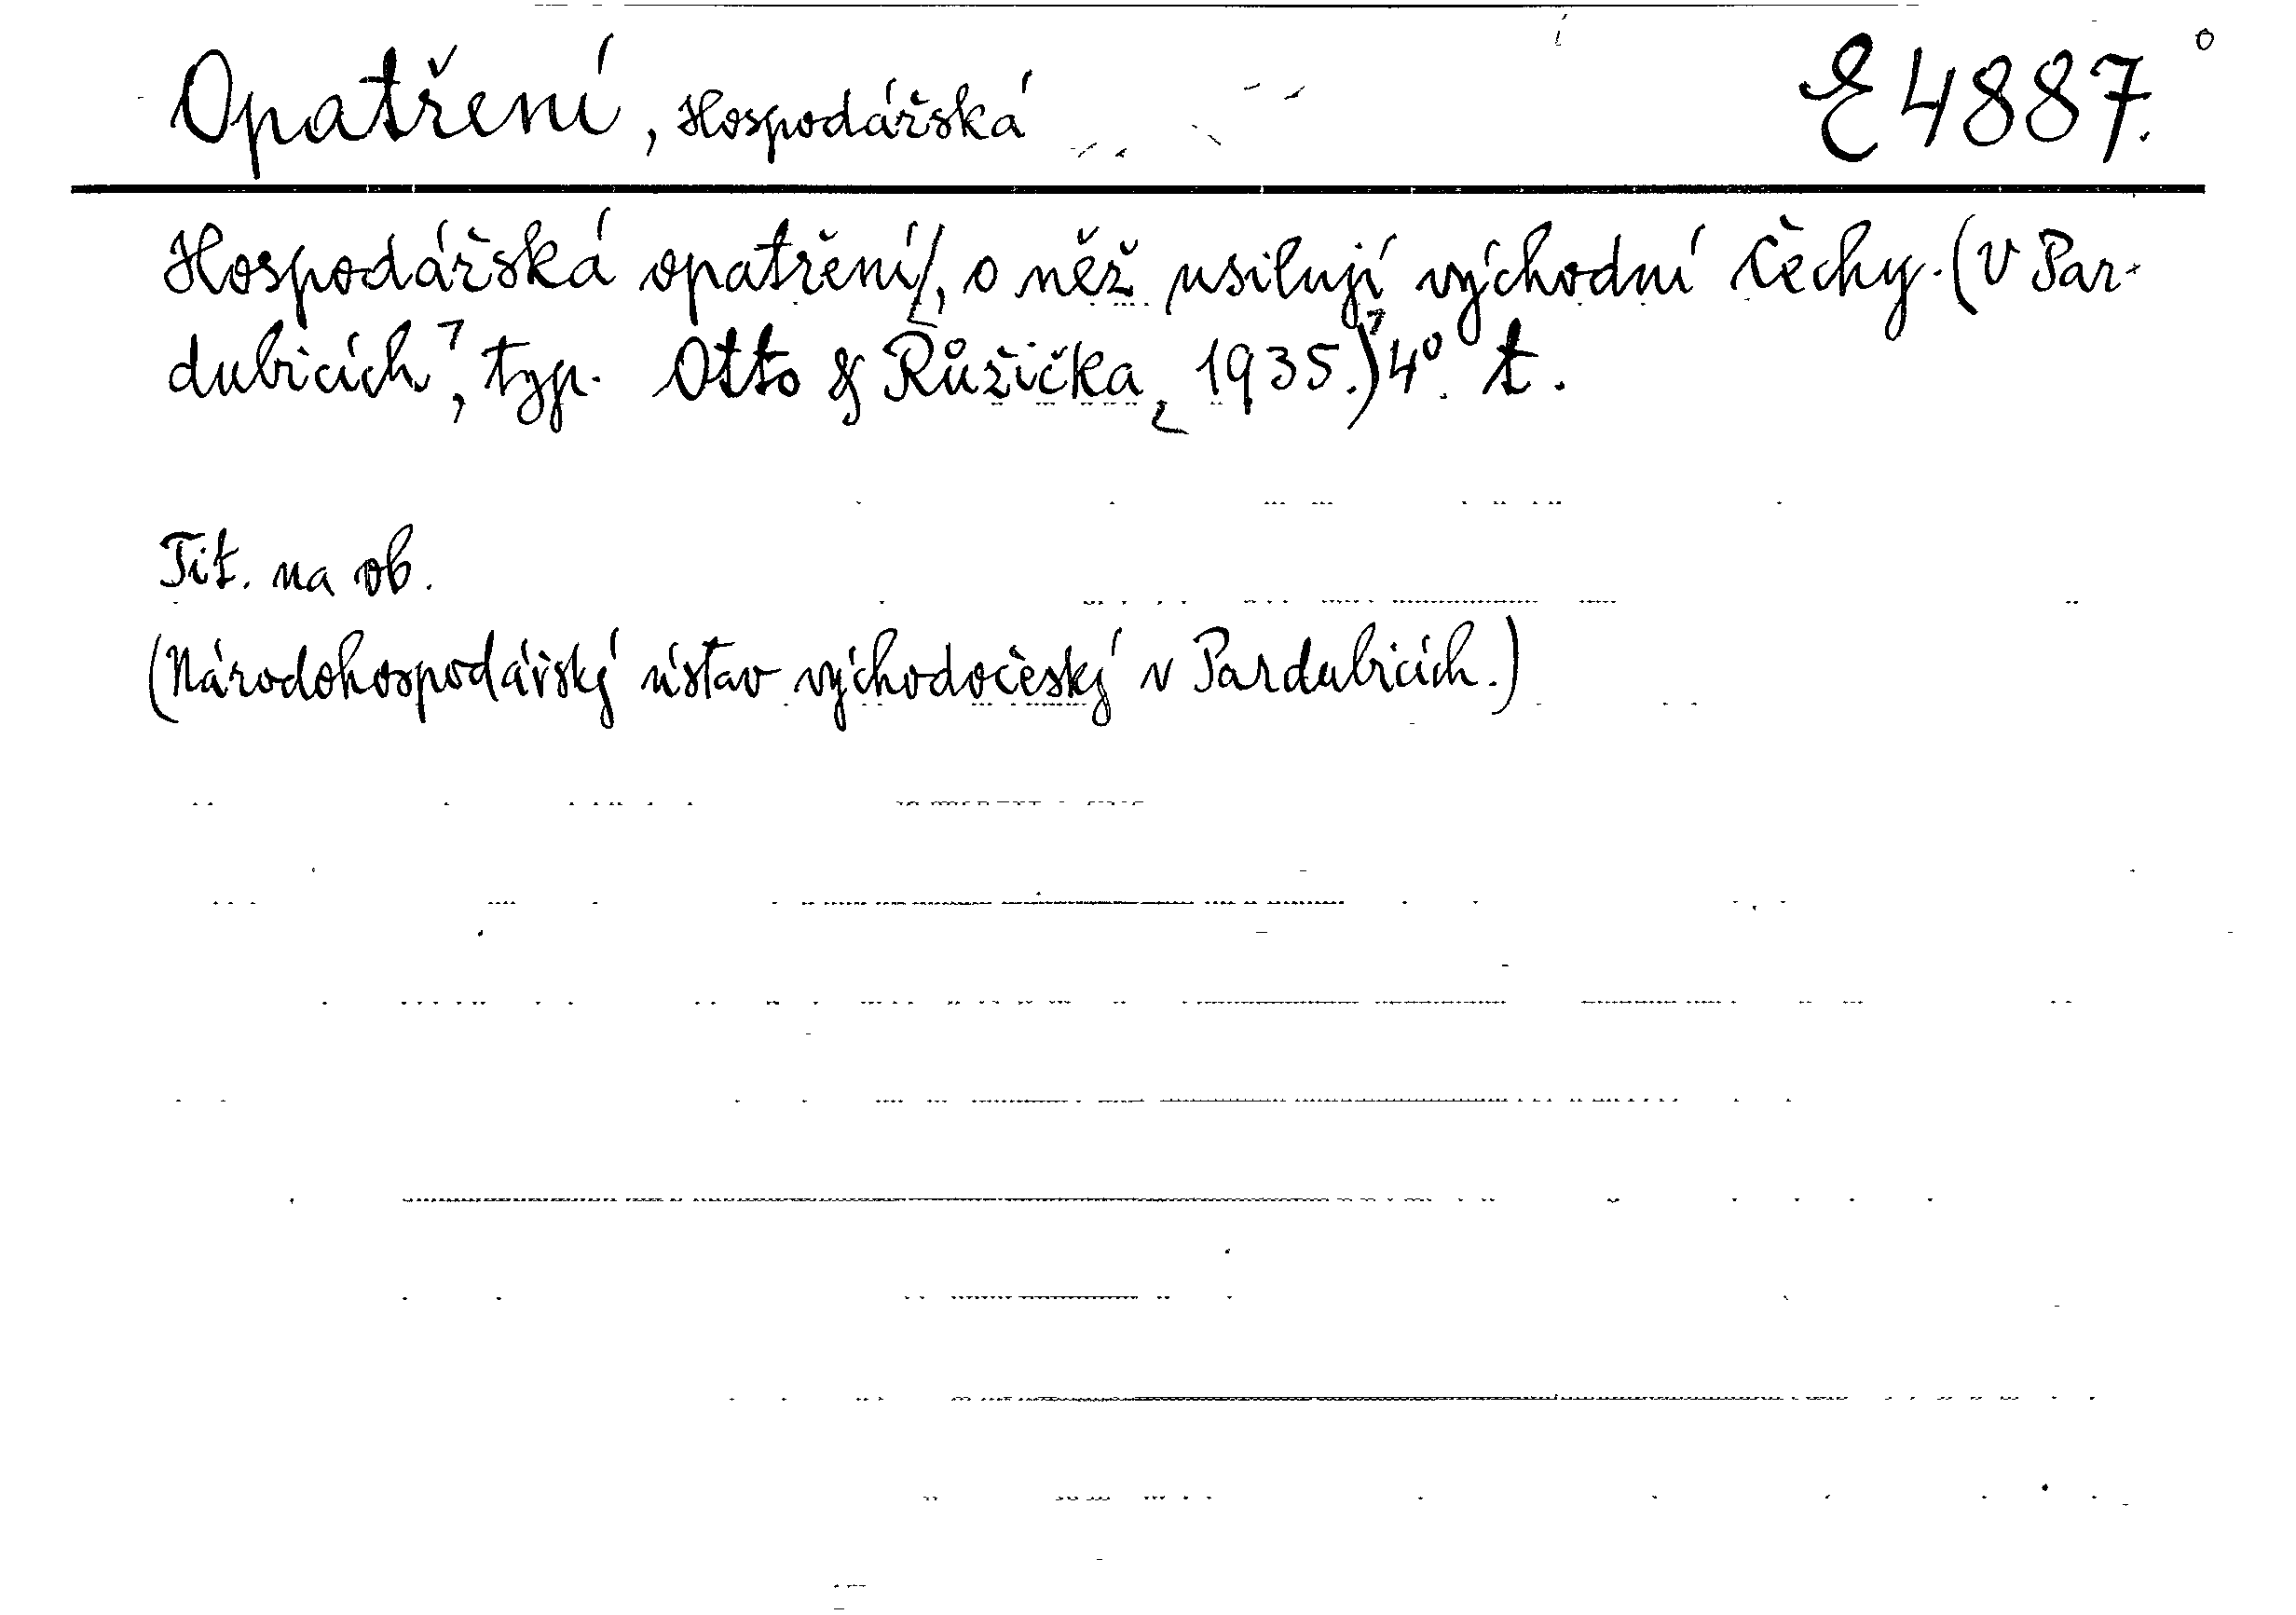 Opatření, Hospodářská E 4887.
Hospodářská opatření, o něž usilují východní Čechy. (V Par-
dubicích, typ. Otto & Růžička, 1935.) 4°. t.
Tit. na ob.
(Národohospodářský ústav východočeský v Pardubicích.)